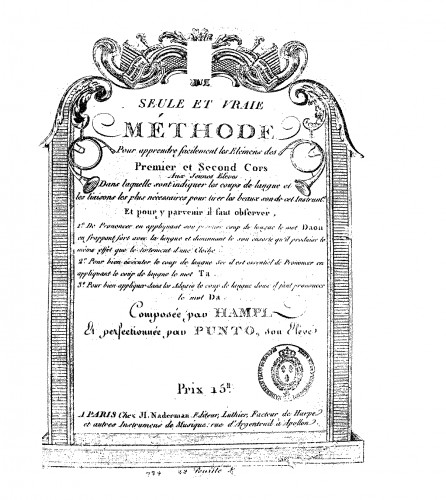 SEULE ET VRAIE
MÉTHODE
Pour apprendre facilement les Elémens des
Premier et Second Cors
Aux Jeunes Eleves
Dans laquelle sont indiquer les coups de langue et
les liaisons les plus nécessaires pour tirer les beaux sons de cet Instrumt
Et pour y parvenir il faut observer,
1º De Prononcer en appliquant son premier coup de langue le mot Daon
en frappant fort avec la langue et diminuant le son ensorte qu'il produise le
même effet que le tintement d'une Cloche
2º Pour bien éxécuter le coup de langue sec il est essentiel de Prononcer en
appliquant le coup de langue le mot Ta.
3º Pour bien appliquer dans les Adagio le coup de langue doux il faut prononcer
le mot Da.
Composée par HAMPL
Et perfectionnée par PUNTO, son Elève
Prix 15
A PARIS Chez J.H. Naderman Editeur, Luthier, Facteur de Harpe,
et autres Instrumens de Musique, rue d'Argenteuil à Apollon.